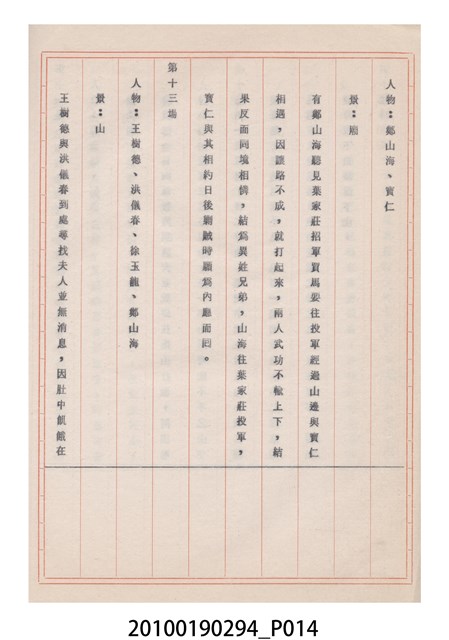 人物：鄭山海、賓仁
景：廟
有鄭山海聽見葉家莊招軍買馬要往投軍經過山邊與賓仁
相遇，因讓路不成，就打起來，兩人武功不輸上下，結
果反面同境相憐，結為異姓兄弟，山海往葉家莊投軍，
賓仁與其相約日後剿賊時願為內應而回。
第十三場
人物：王樹德、洪儀春、徐玉龍、鄭山海
景：山
王樹德與洪儀春到處尋找夫人並無消息，因肚中飢餓在
20100190294_P014